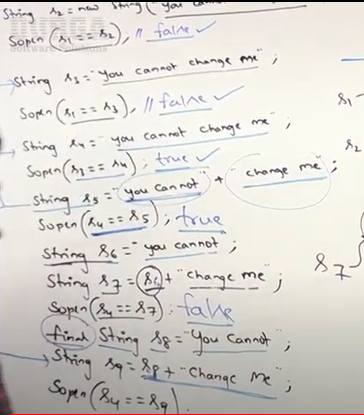 String s2 = new String("you cannot
Sopen(s1 == s2), // false ✓
String s3 = "you cannot change me";
Sopen(s1 == s3), // false ✓
String s4 = "you cannot change me";
Sopen(s3 == s4); true ✓
String s5 = "you cannot" + "change me";
Sopen(s4 == s5); true
String s6 = "you cannot";
String s7 = s6 + "change me";
Sopen(s4 == s7); false
final String s8 = "You Cannot";
String s9 = s8 + "Change Me";
Sopen(s4 == s9).
s1 -
s2
s7